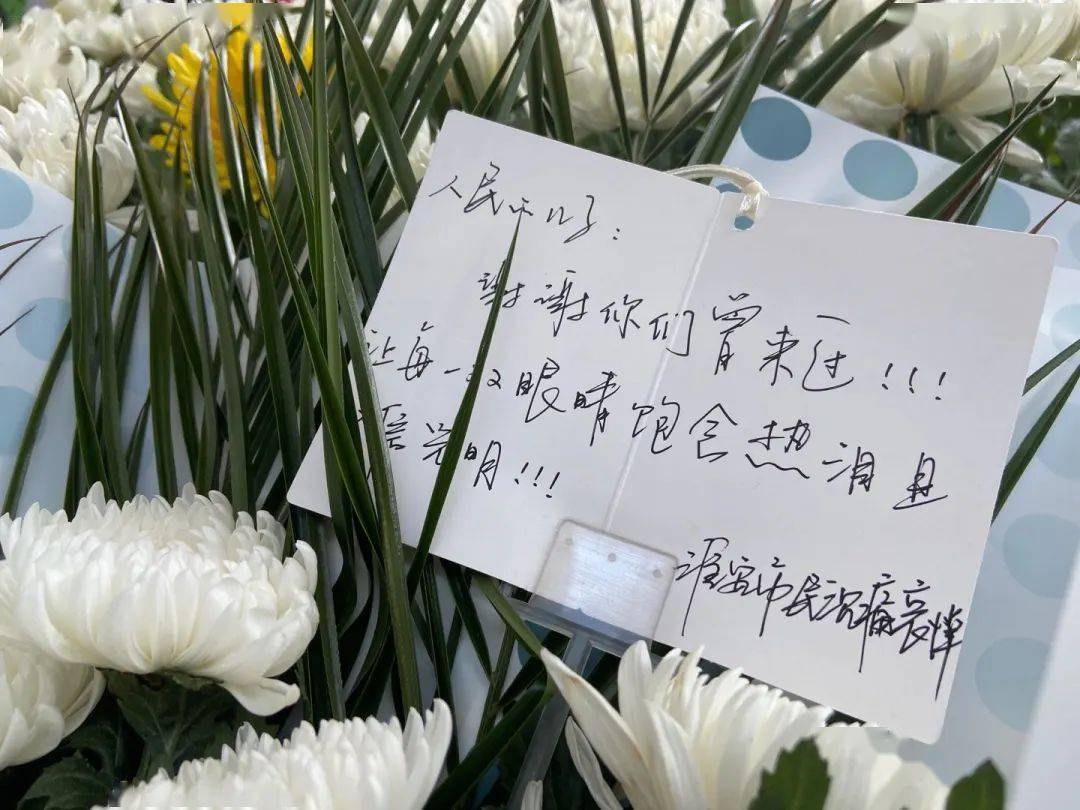 人民的儿子：
谢谢你们曾来过！！！
让每一双眼睛饱含热泪且
光明！！！
淮安市民沉痛哀悼